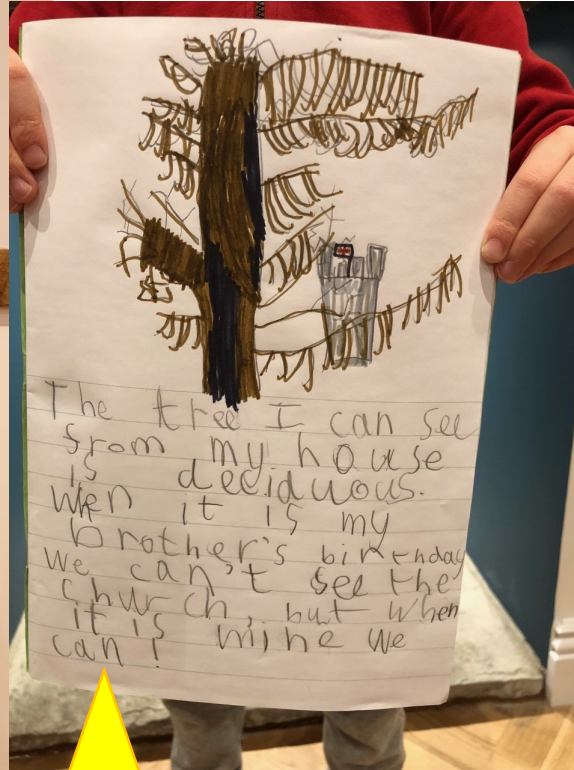 The tree I can see
from my house
is deciduous.
when it is my
brother's birthday
we can't see the
church, but when
it is mine we
can!